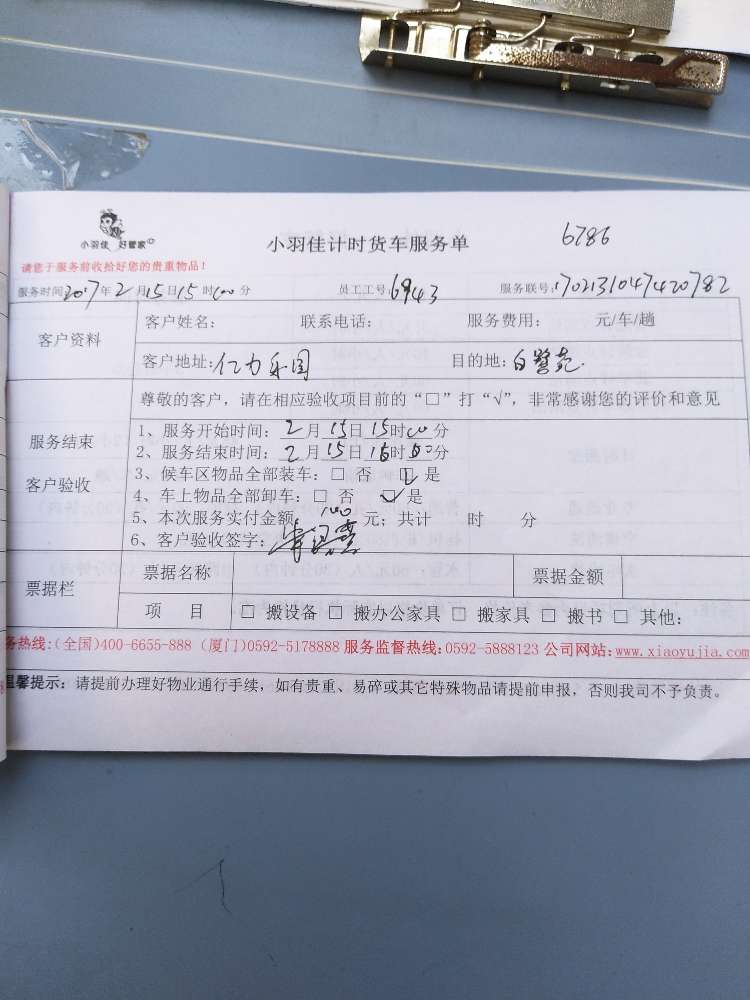 小羽佳 好管家
小羽佳计时货车服务单 6786
请您于服务前收拾好您的贵重物品！
服务时间2017年2月15日15时00分 员工工号:6943 服务联号:1702131047420782
客户资料
客户姓名： 联系电话： 服务费用： 元/车/趟
客户地址:仁力乐园 目的地:白鹭苑
服务结束
客户验收
尊敬的客户，请在相应验收项目前的“□”打“√”，非常感谢您的评价和意见
1、服务开始时间：2月15日15时00分
2、服务结束时间：2月15日16时50分
3、候车区物品全部装车：□ 否 □ 是
4、车上物品全部卸车：□ 否 是
5、本次服务实付金额 100 元；共计 时 分
6、客户验收签字：
票据栏
票据名称 票据金额
项 目 □ 搬设备 □ 搬办公家具 □ 搬家具 □ 搬书 □ 其他：
务热线:(全国)400-6655-888 (厦门)0592-5178888 服务监督热线:0592-5888123 公司网站:www.xiaoyujia.com
温馨提示：请提前办理好物业通行手续，如有贵重、易碎或其它特殊物品请提前申报，否则我司不予负责。